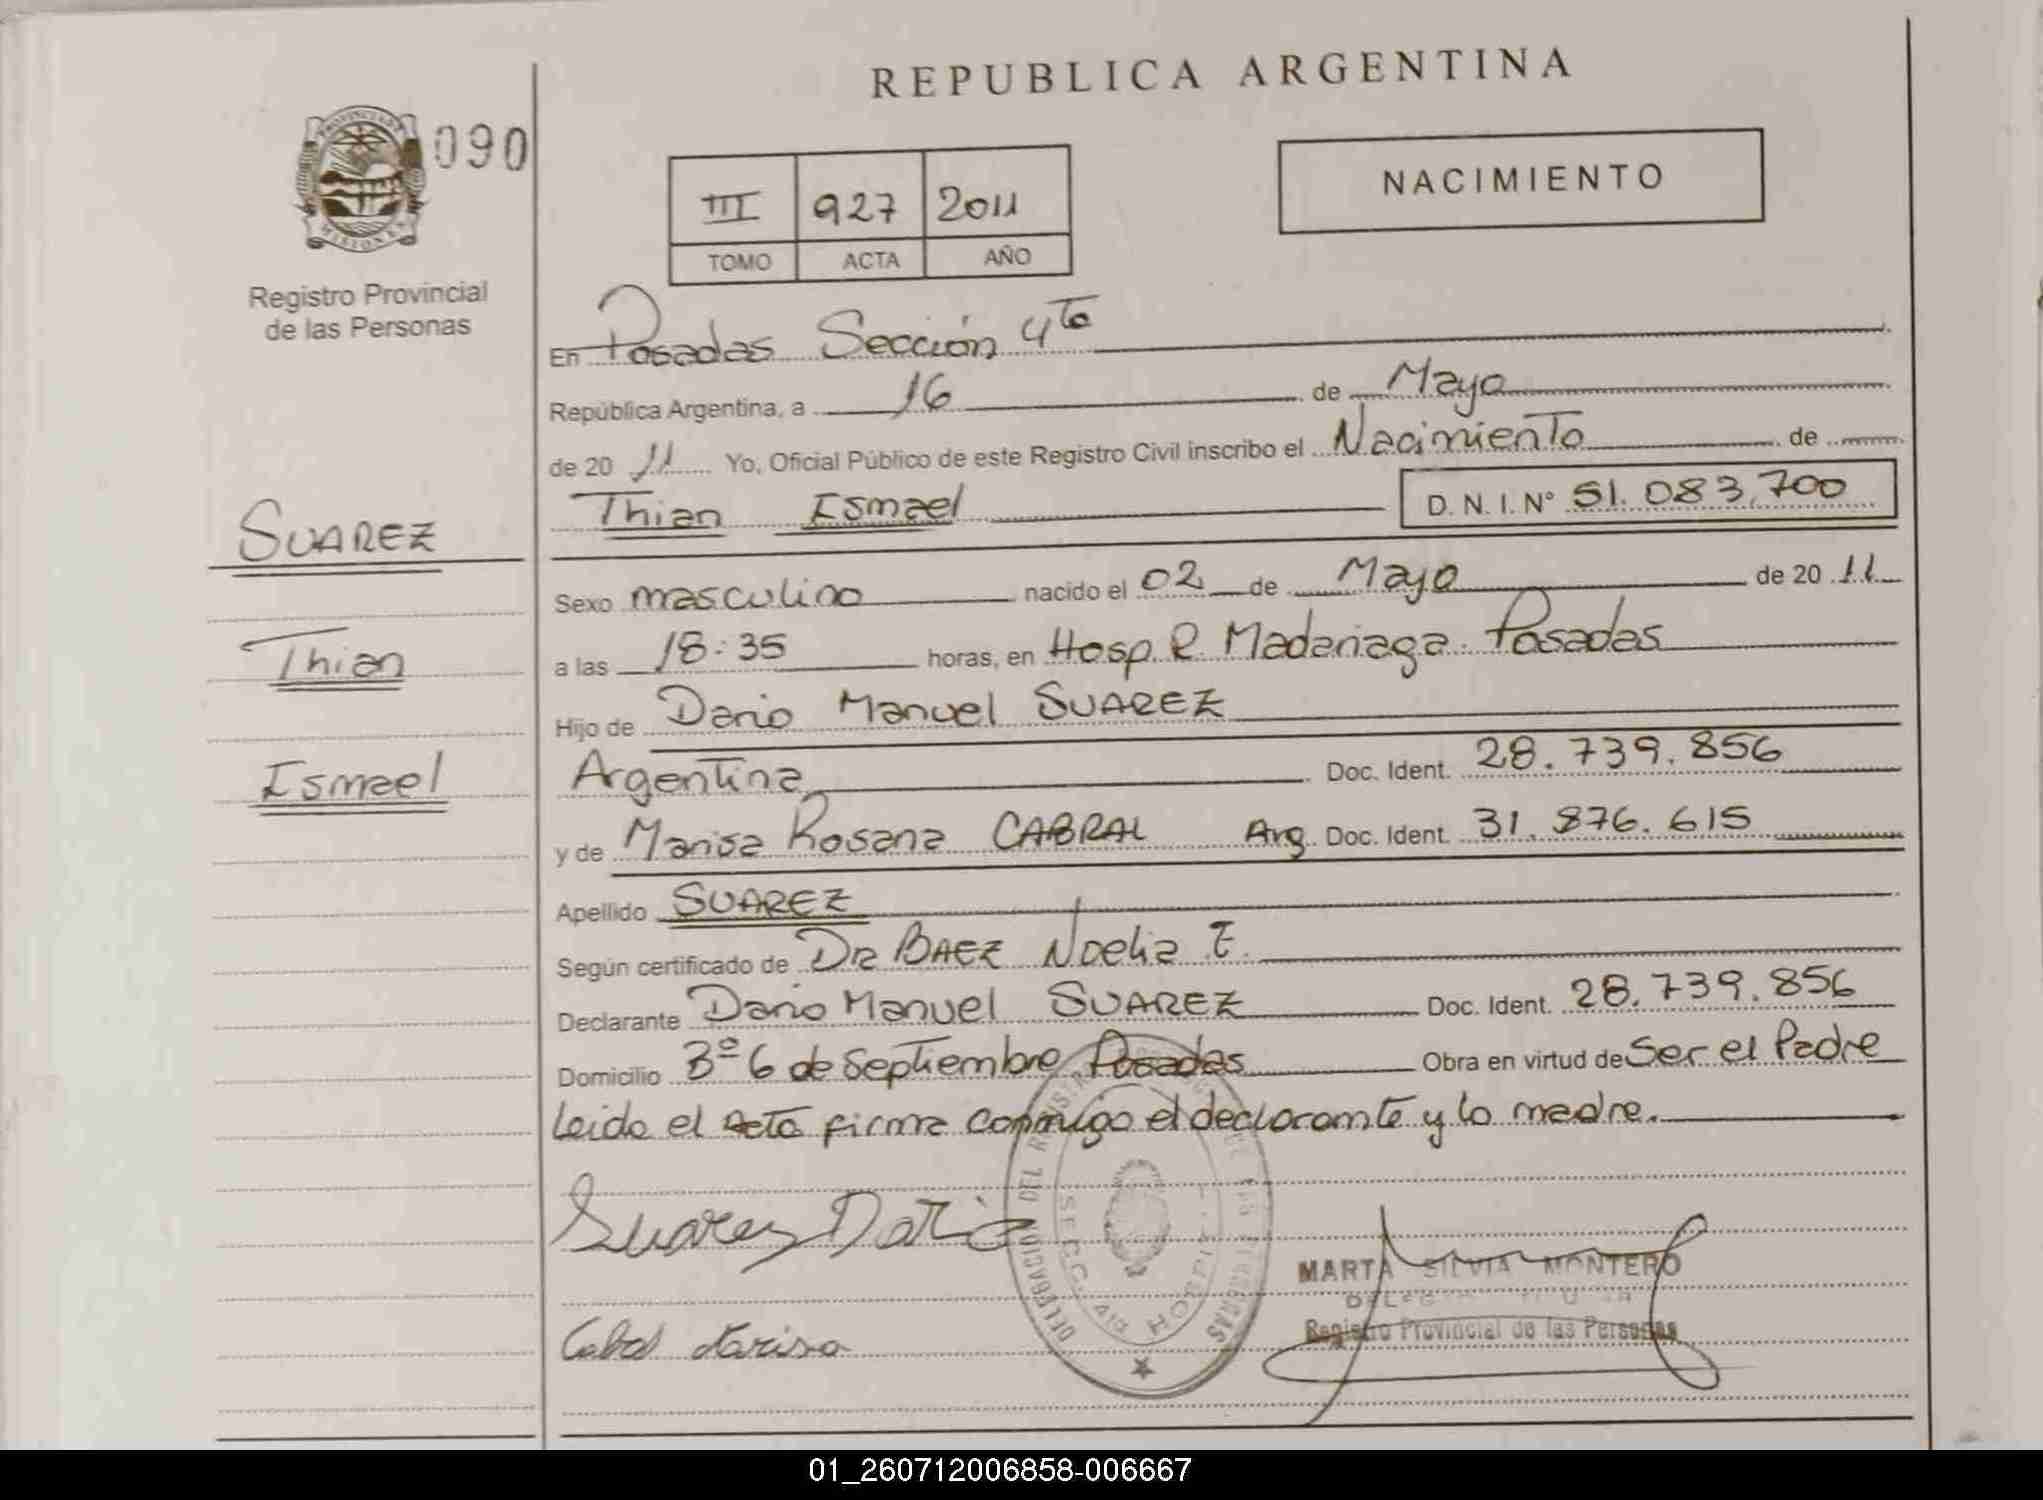 REPUBLICA ARGENTINA
PROVINCIA DE MISIONES
090
Registro Provincial
de las Personas
III 927 2011
TOMO ACTA AÑO
NACIMIENTO
SUAREZ
Thian
Ismael
En Posadas Sección 4ta
República Argentina, a 16 de Mayo
de 20 11 Yo, Oficial Público de este Registro Civil inscribo el Nacimiento de
Thian Ismael D. N. I. Nº 51.083.700
Sexo masculino nacido el 02 de Mayo de 20 11
a las 18:35 horas, en Hosp. R. Madariaga. Posadas
Hijo de Dario Manuel SUAREZ
Argentina Doc. Ident. 28.739.856
y de Marisa Rosana CABRAL Arg. Doc. Ident. 31.876.615
Apellido SUAREZ
Según certificado de DRA BAEZ Noelia E.
Declarante Dario Manuel SUAREZ Doc. Ident. 28.739.856
Domicilio Bº 6 de Septiembre Posadas Obra en virtud de Ser el Padre
Leida el Acta firma conmigo el declarante y la madre.
Suarez Dario
DELEGACION DEL
SECC. 4ta HOSPITAL
MARTA SILVIA MONTERO
Registro Provincial de las Personas
Cabral Marisa
01_260712006858-006667